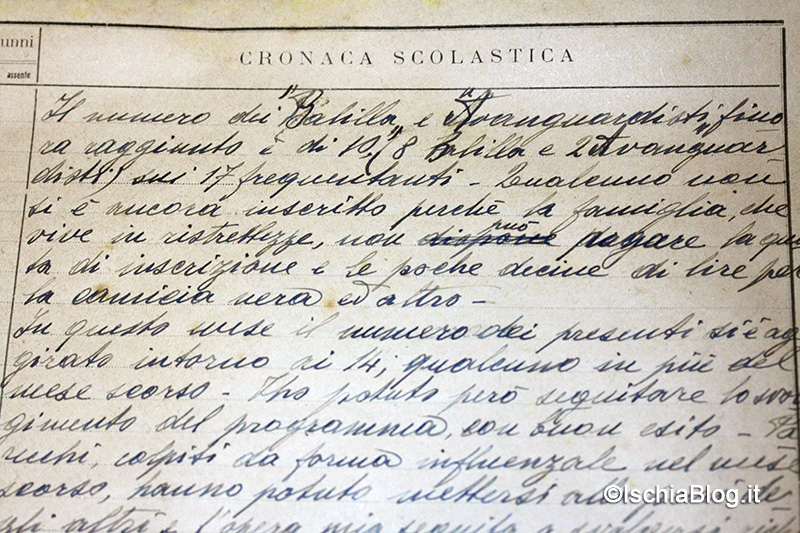 unni
assente
CRONACA SCOLASTICA
Il numero dei "Balilla e "Avanguardisti" fino
ra raggiunto è di 10, (8 Balilla e 2 Avanguar
disti) sui 17 frequentanti - Qualcuno non
si è ancora inscritto perchè la famiglia, che
vive in ristrettezze, non dispone può pagare la quo
ta di inscrizione e le poche decine di lire per
la camicia nera ed altro -
In questo mese il numero dei presenti si è ag
girato intorno ai 14; qualcuno in più del
mese scorso - Ho potuto però seguitare lo svol
gimento del programma, con buon esito - Pa
recchi, colpiti da forma influenzale nel mese
scorso, hanno potuto mettersi
gli altri e l'opera mia seguita a svolgersi
©IschiaBlog.it